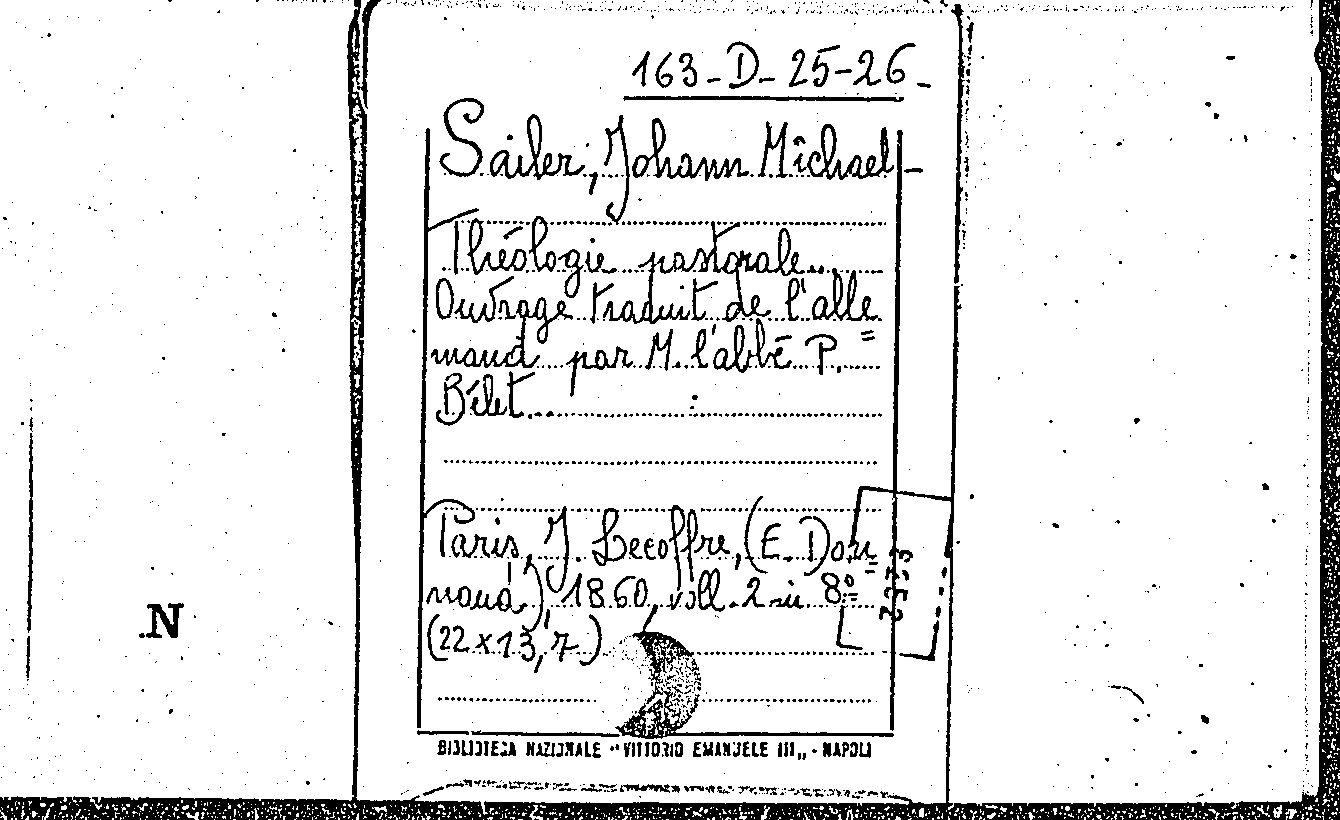 163-D-25-26-
Sailer, Johann Michael-
Théologie pastorale...
Ouvrage traduit de l'alle
mand par M. l'abbé P. =
Bélet...
Paris, J. Lecoffre, (E. Dou
naud), 1860, voll. 2 in 8º=
(22 x 13,7)
.N
BIBLIOTECA NAZIONALE "VITTORIO EMANUELE III„ - NAPOLI